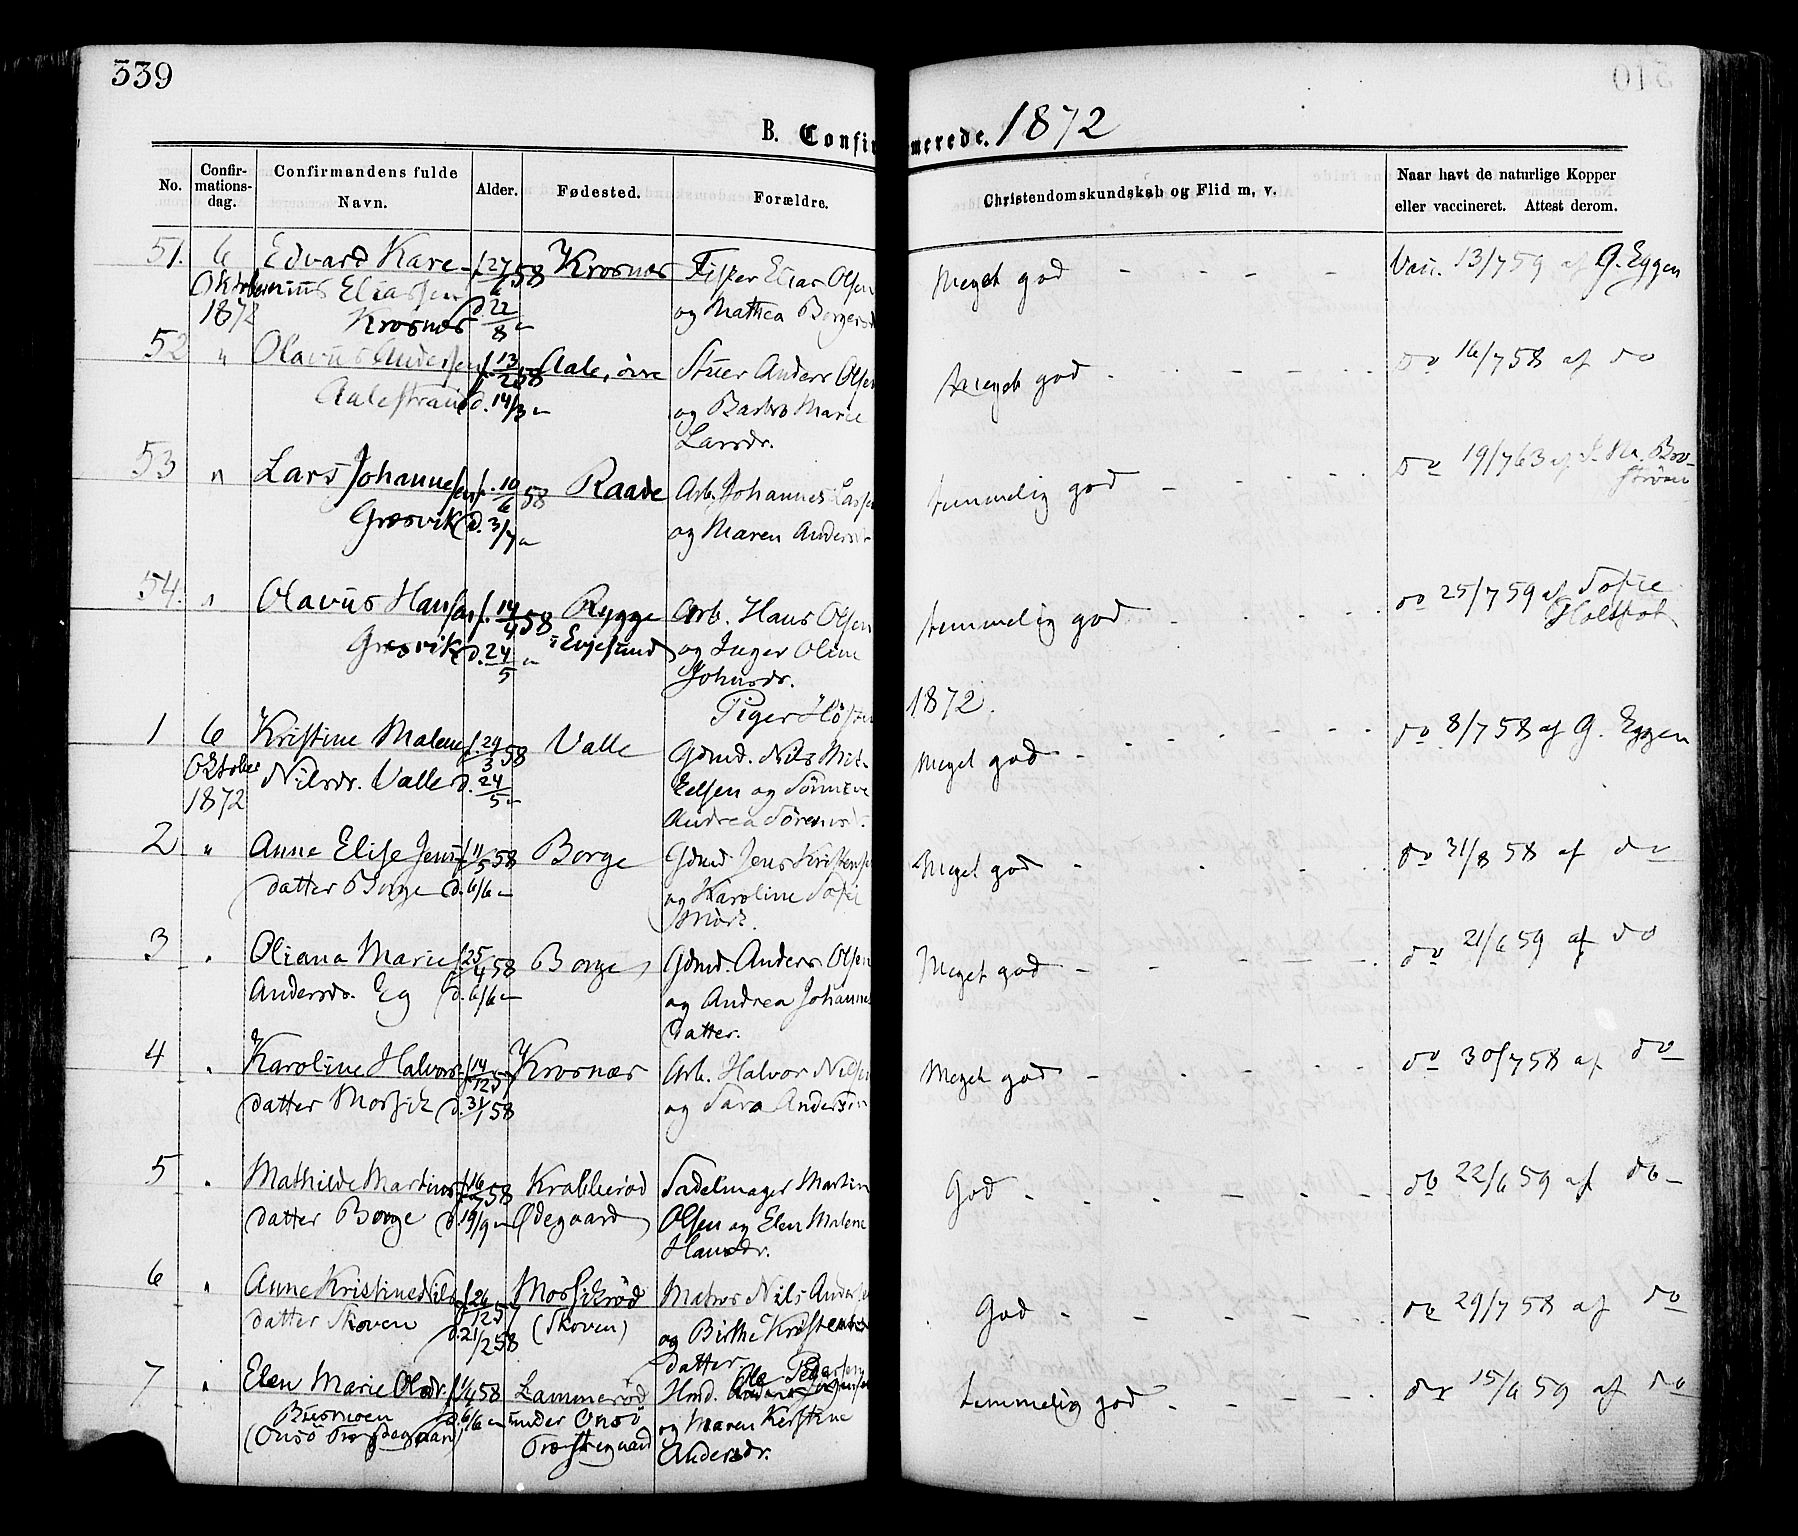 339
B. Confirmerede. 1872
No.
Confir-
mations-
dag.
Confirmandens fulde
Navn.
Alder.
Fødested.
Forældre.
Christendomskundskab og Flid m, v.
Naar havt de naturlige Kopper
eller vaccineret. Attest derom.
51. 6 Edvard Kare- f. 27/6 58 Krosnæs Fisker Elias Olsen Meget god - - - - Vaii. 13/7 59 af G. Eggen
Oktober nius Eliassen d. 22/8 " og Mathea Borgersd
1872 Krosnæs
52 " Olavus Andersen f. 13/2 58 Aale, øvre Stuer Anders Olsen Meget god - - - - do 16/7 58 af do
Aalestrand d. 14/3 " og Barbro Marie
Larsdr.
53 " Lars Johannesen f. 10/6 58 Raade Arb. Johannes Larsen temmelig god - - - - do 19/7 63 af
Græsvik d. 3/7 " og Maren Andersdr
54. " Olavus Hansen f. 14/4 58 Rygge Arb. Hans Olsen temmelig god - - - - do 25/7 59 af Sofie
Græsvik d. 24/5 " Evjesund og Inger Oline Holtfot
Johnsdr.
Piger Høsten 1872.
1 6 Kristine Malene f. 29/3 58 Valle Gdmd. Nils Mik- Meget god - - - - do 8/7 58 af G. Eggen
Oktober Nilsdr. Valle d. 24/5 " kelsen og
1872 Andrea Sørensd.
2 " Anne Elise Jens- f. 11/5 58 Borge Gdmd Jens Kristensen Meget god - - do 31/8 58 af do
datter Borge d. 6/6 " og Karoline Sofie
Mørk.
3 " Oliana Marie f. 25/4 58 Borge Gdmd. Anders Olsen Meget god - - - - do 21/6 59 af do
Andersdr. Eg d. 6/6 " og Andrea Johannes
datter.
4 " Karoline Halvors- f. 14/12 57 Krosnæs Arb. Halvor Nilsen Meget god - - - - do 30/7 58 af do
datter Mossik d. 31/1 58 og Sara Andersdr
5 " Mathilde Martins- f. 16/7 58 Krabberød Sadelmager Martin God - - - - do 22/6 59 af do
datter Borge d. 19/9 " Ødegaard Olsen og Elen Malene
Hansdr.
6 " Anne Kristine Nils- f. 26/12 57 Mossikrød Matros Nils Andersen God - - - - do 29/7 58 af do
datter Skoven d. 21/2 58 (Skoven) og Birthe Kristens
datter.
7 " Elen Marie Olsdr. f. 1/4 58 Lammerød Hmd. Ole Pedersen temmelig god - - - - do 15/6 59 af do
d. 6/6 " under Onsø og Maren Kerstine
(Onsø Præstegaard) Præstegaard Andersdr.